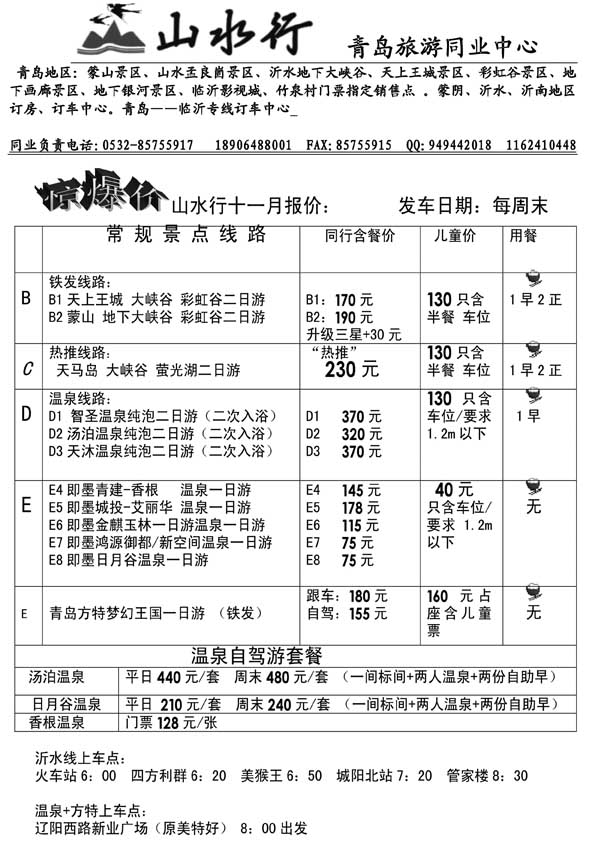 山水行 青岛旅游同业中心
青岛地区: 蒙山景区、山水至良崮景区、沂水地下大峡谷、天上王城景区、彩虹谷景区、地
下画廊景区、地下银河景区、临沂影视城、竹泉村门票指定销售点 。蒙阴、沂水、沂南地区
订房、订车中心。青岛——临沂专线订车中心_
同业负责电话:0532-85755917 18906488001 FAX:85755915 QQ:949442018 1162410448
惊爆价 山水行十一月报价: 发车日期: 每周末
常 规 景 点 线 路 同行含餐价 儿童价 用餐
B
铁发线路:
B1 天上王城 大峡谷 彩虹谷二日游
B2 蒙山 地下大峡谷 彩虹谷二日游
B1: 170 元
B2: 190 元
升级三星+30 元
130 只含
半餐 车位
1 早 2 正
C
热推线路:
天马岛 大峡谷 萤光湖二日游
“热推”
230 元
130 只含
半餐 车位
1 早 2 正
D
温泉线路:
D1 智圣温泉纯泡二日游（二次入浴）
D2 汤泊温泉纯泡二日游（二次入浴）
D3 天沐温泉纯泡二日游（二次入浴）
D1 370 元
D2 320 元
D3 370 元
130 只含
车位/要求
1.2m 以下
1 早
E
E4 即墨青建-香根 温泉一日游
E5 即墨城投-艾丽华 温泉一日游
E6 即墨金麒玉林一日游温泉一日游
E7 即墨鸿源御都/新空间温泉一日游
E8 即墨日月谷温泉一日游
E4 145 元
E5 178 元
E6 115 元
E7 75 元
E8 75 元
40 元
只含车位/
要求 1.2m
以下
无
E
青岛方特梦幻王国一日游 （铁发）
跟车: 180 元
自驾: 155 元
160 元占
座含儿童
票
无
温泉自驾游套餐
汤泊温泉 平日 440 元/套 周末 480 元/套 （一间标间+两人温泉+两份自助早）
日月谷温泉 平日 210 元/套 周末 240 元/套 （一间标间+两人温泉+两份自助早）
香根温泉 门票 128 元/张
沂水线上车点:
火车站 6: 00 四方利群 6: 20 美猴王 6: 50 城阳北站 7: 20 管家楼 8: 30
温泉+方特上车点:
辽阳西路新业广场（原美特好） 8: 00 出发